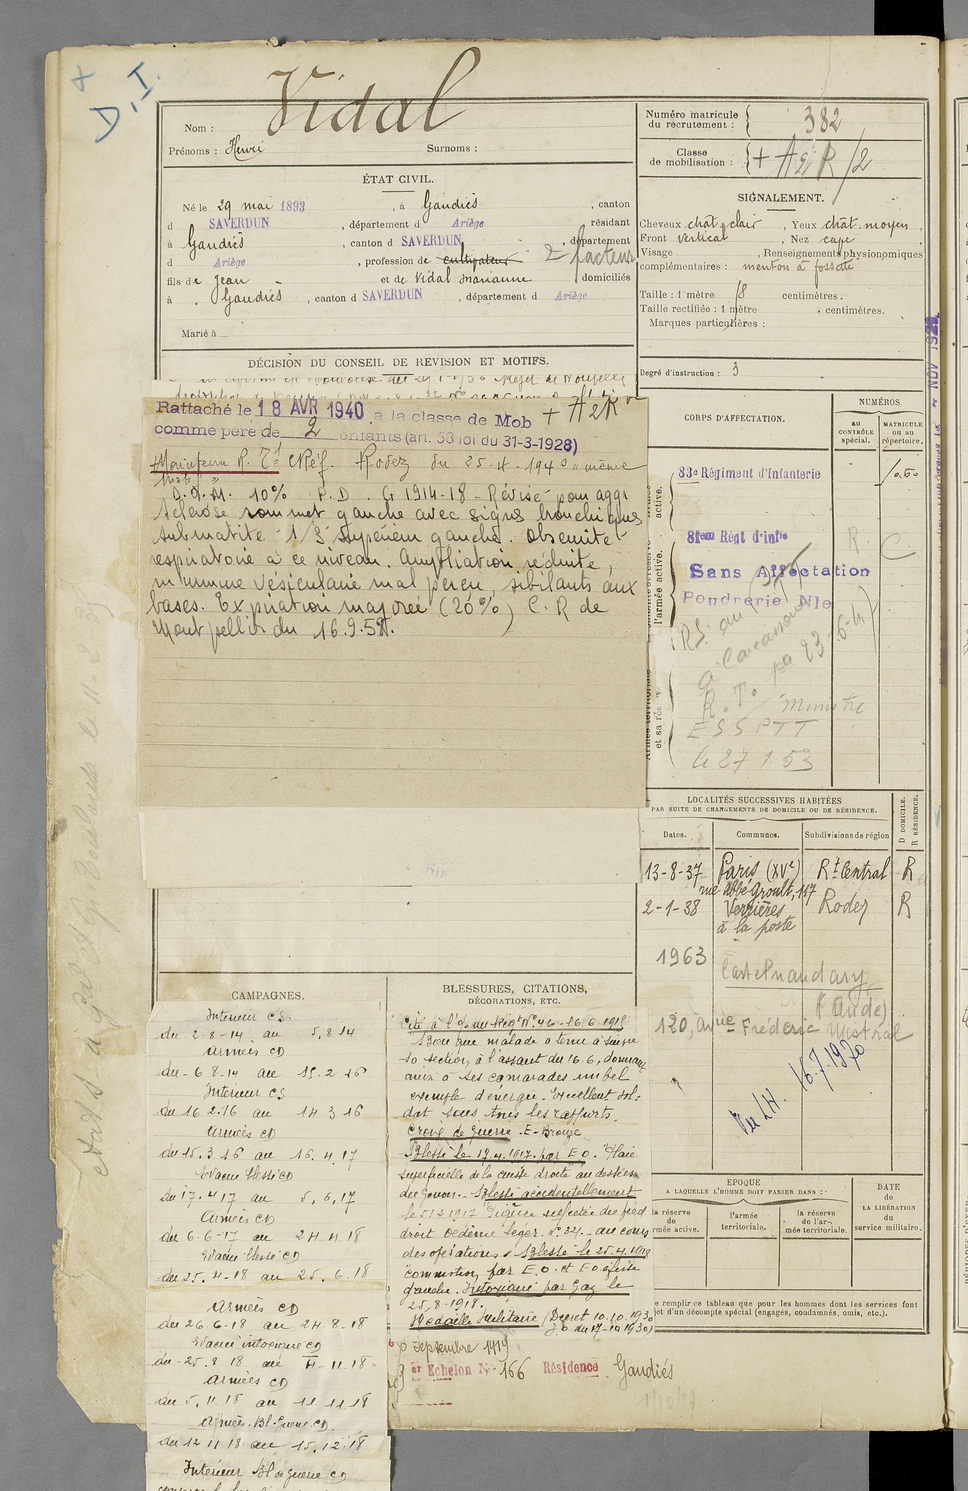 +
D.I.
Vidal
Nom :
Prénoms : Henri Surnoms :
ÉTAT CIVIL.
Né le 29 mai 1893, à Gaudiès, canton
d SAVERDUN, département d Ariège résidant
à Gaudiès, canton d SAVERDUN, département
d Ariège, profession de cultivateur 2 facteur
fils de Jean et de Vidal Marianne domiciliés
à Gaudiès, canton d SAVERDUN, département d Ariège
Marié à
DÉCISION DU CONSEIL DE REVISION ET MOTIFS.
Rattaché le 18 AVR 1940 à la classe de Mob + A2R
comme père de 2 enfants (art. 58 loi du 31-3-1928)
Maintenu R. Réf. Rodez du 25-4-1940 même
motif
10% P.D. G 1914-18 - Révisé pour aggr
sclérose sommet gauche avec signes bronchiques
submatité 1/3 supérieur gauche. Obscurité
respiratoire à ce niveau. Ampliation réduite,
murmure vésiculaire mal perçu, sibilants aux
bases. Expiration majorée (20%) C. R de
Montpellier du 16.9.52.
Numéro matricule
du recrutement : 382
Classe
de mobilisation : + A2R/2
SIGNALEMENT.
Cheveux chât clair, Yeux chât. moyen,
Front vertical, Nez cave,
Visage, Renseignements physionomiques
complémentaires : menton à fossette
Taille : 1 mètre 18 centimètres.
Taille rectifiée : 1 mètre centimètres.
Marques particulières :
Degré d'instruction : 3
CORPS D'AFFECTATION.
NUMÉROS
au
CONTRÔLE
spécial.
MATRICULE
ou au
répertoire.
83e Régiment d'Infanterie
81em Régt d'infie
R. C.
Sans Affectation
Poudrerie Nle
à Carcassonne
R. T. Ministre
E S S P T T
le 27 1.53
l'armée active.
LOCALITÉS SUCCESSIVES HABITÉES
PAR SUITE DE CHANGEMENTS DE DOMICILE OU DE RÉSIDENCE.
Dates. Communes. Subdivisions de région
D DOMICILE.
R RÉSIDENCE.
13-8-37 Paris (XVe) Rt Central R
rue Abbé Groult, 117
2-1-38 Verrières Rodez R
à la poste
1963 Castelnaudary
(Aude)
120, Avnue Frédéric Mistral
Vu LH. 16.7.1970
EPOQUE
A LAQUELLE L'HOMME DOIT PASSER DANS :
la réserve
de
l'armée active.
l'armée
territoriale.
la réserve
de l'ar-
mée territoriale.
DATE
de
LA LIBÉRATION
du
service militaire.
e remplir ce tableau que pour les hommes dont les services font
jet d'un décompte spécial (engagés, condamnés, omis, etc.).
CAMPAGNES.
Intérieur CS
du 2-8-14 au 5.8.14
Armées CD
du 6-8-14 au 15.2.16
Intérieur CS
du 16.2.16 au 14 3 16
Armées CD
du 15.3 16 au 16.4.17
Evacué blessé CD
du 17.4 17 au 5.6.17
Armées CD
du 6-6-17 au 24.4.18
Evacué blessé CD
du 25.4-18 au 25.6.18
Armées CD
du 26-6-18 au 24-8-18
Evacué intoxiqué CD
du 25.8 18 au 4-11.18
Armées CD
du 5.11.18 au 11 11 18
Armées Bl. Guerre CD
du 12 11 18 au 15.12.18
Intérieur Bl de guerre CD
BLESSURES, CITATIONS,
DÉCORATIONS, ETC.
Cité à l'O. du Régt No 46 - 16.6.1918
Bien que malade a tenu à suivre
sa section à l'assaut du 16.6, donnant
ainsi à ses camarades un bel
exemple d'énergie. Excellent sol-
dat sous tous les rapports.
Croix de Guerre. E. Bronze
Blessé le 17.4.1917 par E O. Plaie
superficielle de la cuisse droite au dessus
du Genou. Blessé accidentellement
le 5.12.1917 Piqûre infectée du pied
droit oedème léger. au cours
des opérations. Blessé le 25.4.1918
commotion par E.O. et
gauche. Intoxiqué par Gaz le
25.8.1918.
Médaille Militaire (Décret 10.10.1930
J.O du 17-10 1930)
septembre 1919
1er Echelon No 166 Résidence Gaudiès